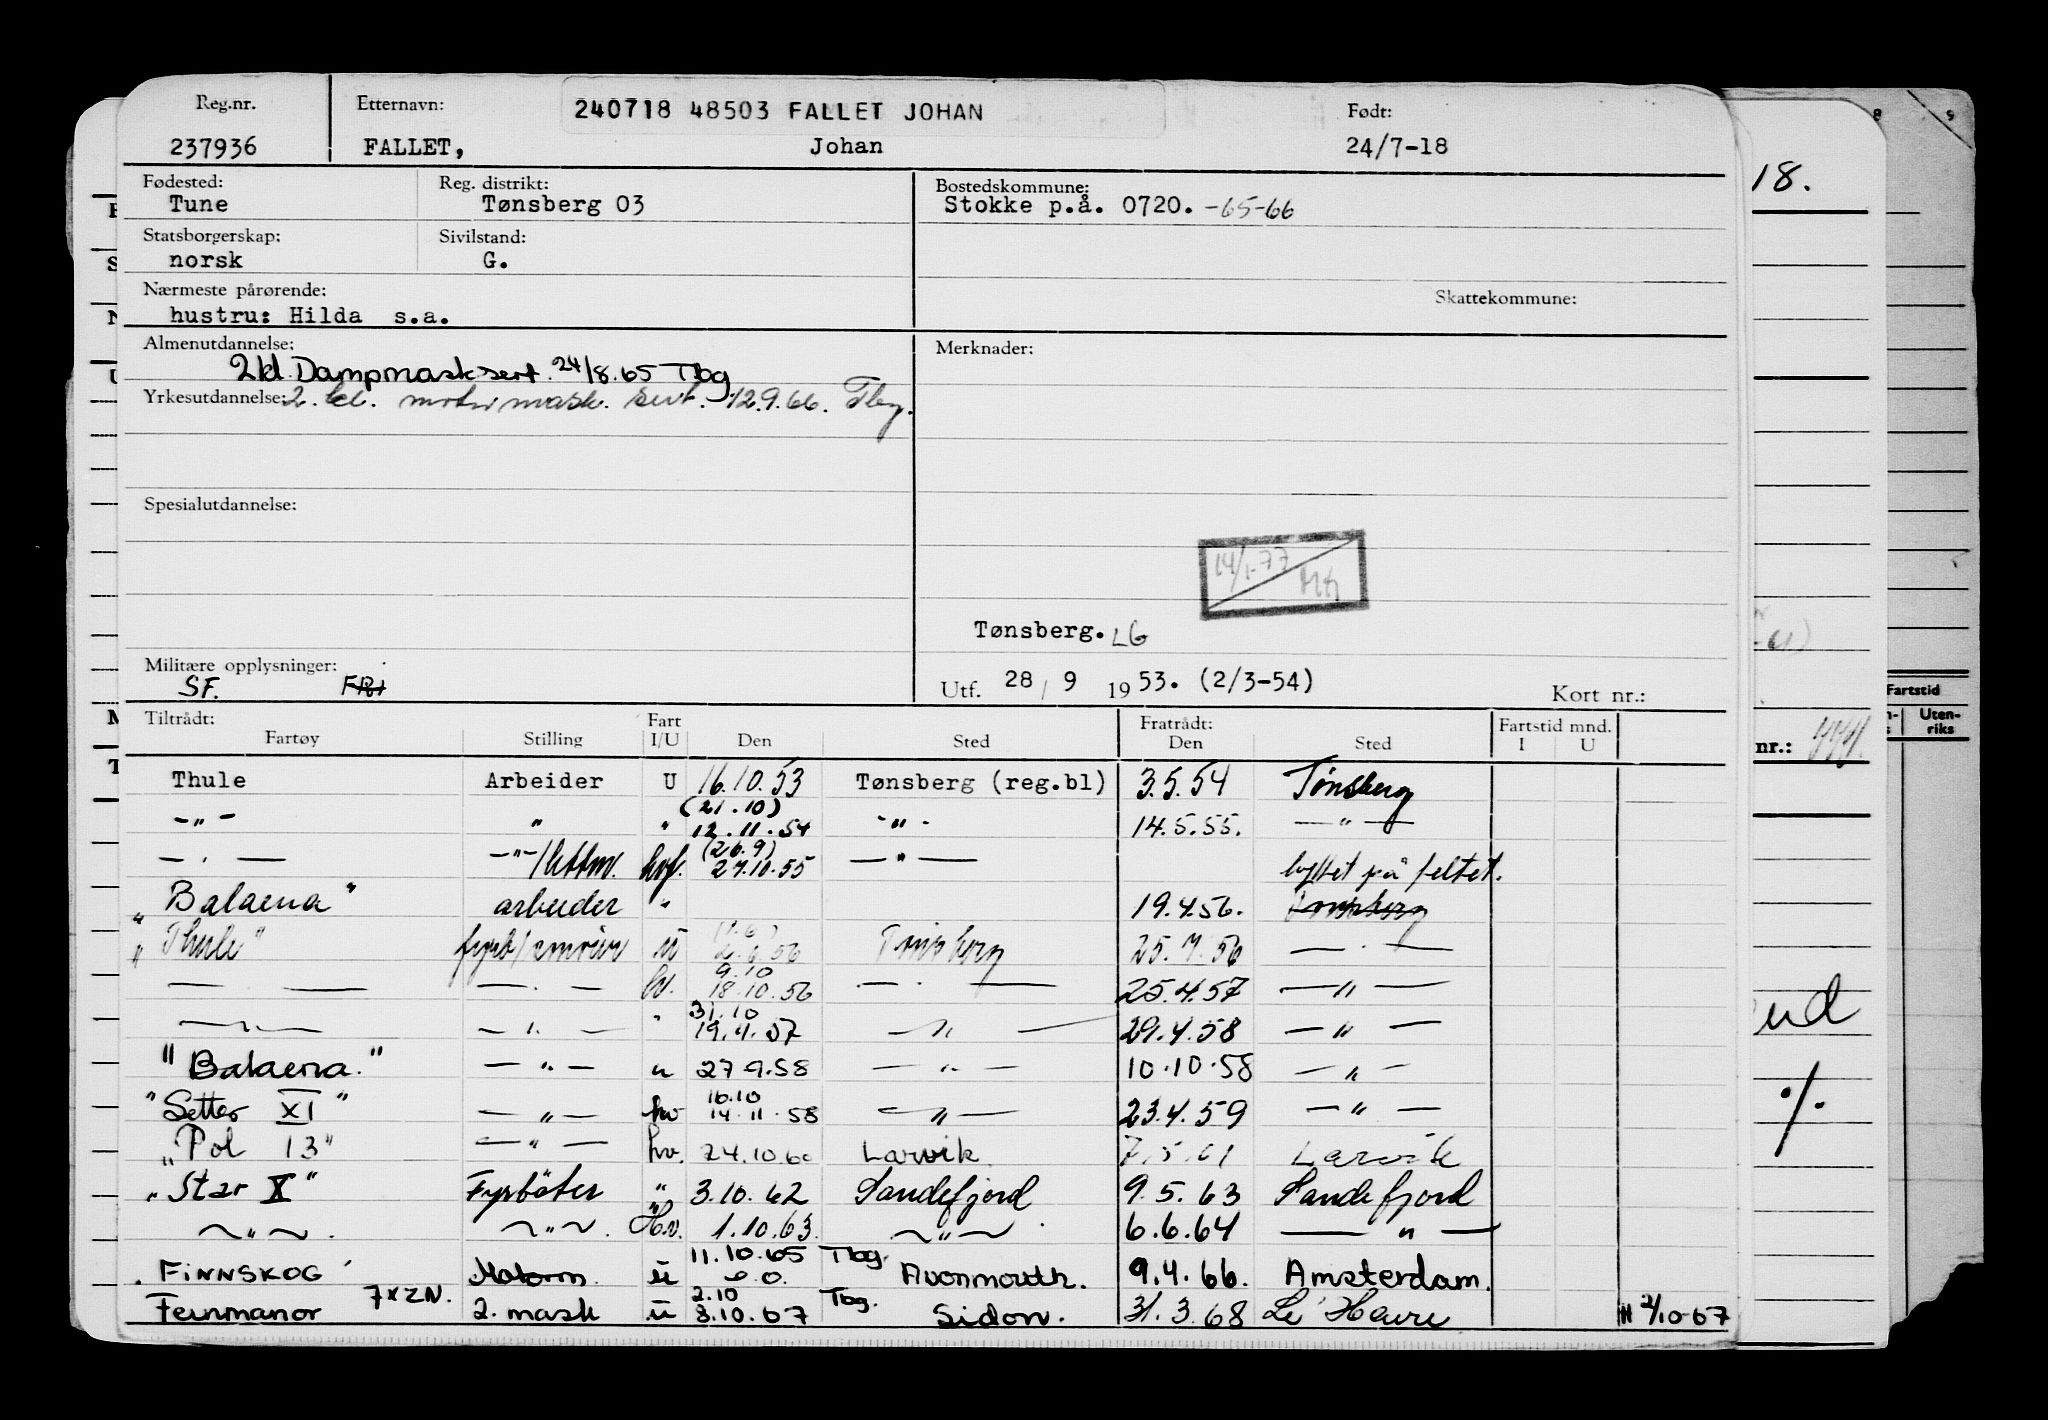 Reg.nr. Etternavn: 240718 48503 FALLET JOHAN Født:
237936 FALLET, Johan 24/7-18
Fødested: Reg. distrikt: Bostedskommune:
Tune Tønsberg 03 Stokke p.å. 0720. -65-66
Statsborgerskap: Sivilstand:
norsk G.
Nærmeste pårørende: Skattekommune:
hustru: Hilda s.a.
Almenutdannelse: Merknader:
2kl. Dampmasksert. 24/8.65 Tbg
Yrkesutdannelse: 2. kl. motormask. sert. 12.9.66. Tbg.
Spesialutdannelse:
14/1-77
Tønsberg. LG
Militære opplysninger:
SF. FRI
Utf. 28/9 1953. (2/3-54) Kort nr.:
Tiltrådt: Fart Fratrådt: Fartstid mnd.
Fartøy Stilling I/U Den Sted Den Sted I U
Thule Arbeider U 16.10.53 Tønsberg (reg.bl) 3.5.54 Tønsberg
(21.10)
-"- " " 12.11.54 -"- 14.5.55. -"-
(26.9)
-"- -"-/lettm. hvf. 27.10.55 -"- byttet på feltet.
"Balaena" arbeider " 19.4.56. Tønsberg
"Thule" fyrb/smører u 2.6.56 Tønsberg 25.7.56 -"-
9.10
-"- -"- hv. 18.10.56 -"- 25.4.57 -"-
31.10
-"- -"- " 19.4.57 -"- 29.4.58 -"-
"Balaena." -"- u 27.9.58 -"- 10.10.58 -"-
16.10
"Setter XI" -"- hv 14.11.58 -"- 23.4.59 -"-
"Pol 13" -"- hv. 24.10.60 Larvik 7.5.61 Larvik
"Star X" Fyrbøter " 3.10.62 Sandefjord 9.5.63 Sandefjord
-"- -"- Hv. 1.10.63. -"- 6.6.64 -"-
11.10.65 Tbg.
FINNSKOG Motorm. u Avonmouth. 9.4.66. Amsterdam.
7xZN. 2.10 Tbg.
Fernmanor 2. mask u 3.10.67 Sidon. 31.3.68 Le Havre 2/10-67
18.
nr.:
Fartstid
Uten-
riks